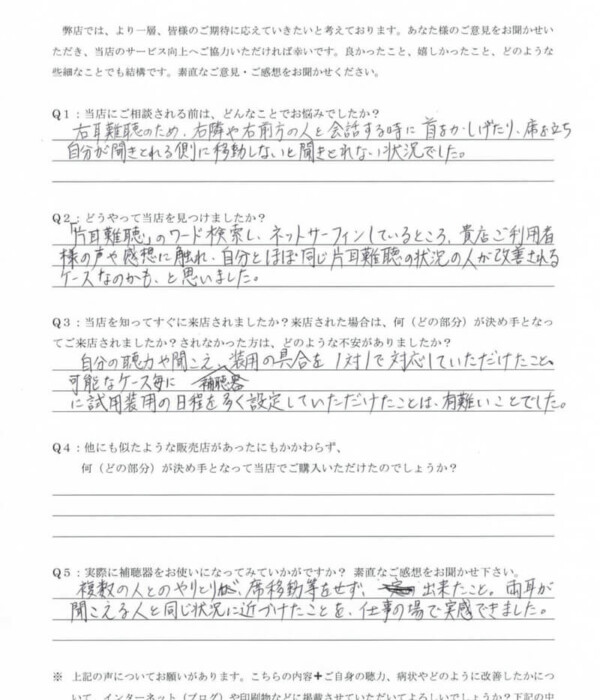 弊店では、より一層、皆様のご期待に応えていきたいと考えております。あなた様のご意見をお聞かせい
ただき、当店のサービス向上へご協力いただければ幸いです。良かったこと、嬉しかったこと、どのような
些細なことでも結構です。素直なご意見・ご感想をお聞かせください。
Q1：当店にご相談される前は、どんなことでお悩みでしたか？
右耳難聴のため、右隣や右前方の人と会話する時に首をかしげたり、席を立ち
自分が聞きとれる側に移動しないと聞きとれない状況でした。
Q2：どうやって当店を見つけましたか？
「片耳難聴」のワード検索し、ネットサーフィンしているところ、貴店ご利用者
様の声や感想に触れ、自分とほぼ同じ片耳難聴の状況の人が改善される
ケースなのかも、と思いました。
Q3：当店を知ってすぐに来店されましたか？来店された場合は、何（どの部分）が決め手となっ
てご来店されましたか？されなかった方は、どのような不安がありましたか？
自分の聴力や聞こえ、装用の具合を1対1で対応していただけたこと。
可能なケース毎に 補聴器
に試用装用の日程を多く設定していただけたことは、有難いことでした。
Q4：他にも似たような販売店があったにもかかわらず、
何（どの部分）が決め手となって当店でご購入いただけたのでしょうか？
Q5：実際に補聴器をお使いになってみていかがですか？ 素直なご感想をお聞かせ下さい。
複数の人とのやりとりが、席移動等をせず、出来たこと。両耳が
聞こえる人と同じ状況に近づけたことを、仕事の場で実感できました。
※ 上記の声についてお願いがあります。こちらの内容＋ご自身の聴力、病状やどのように改善したかにつ
いて、インターネット（ブログ）や印刷物などに掲載させていただいてよろしいでしょうか？下記の中